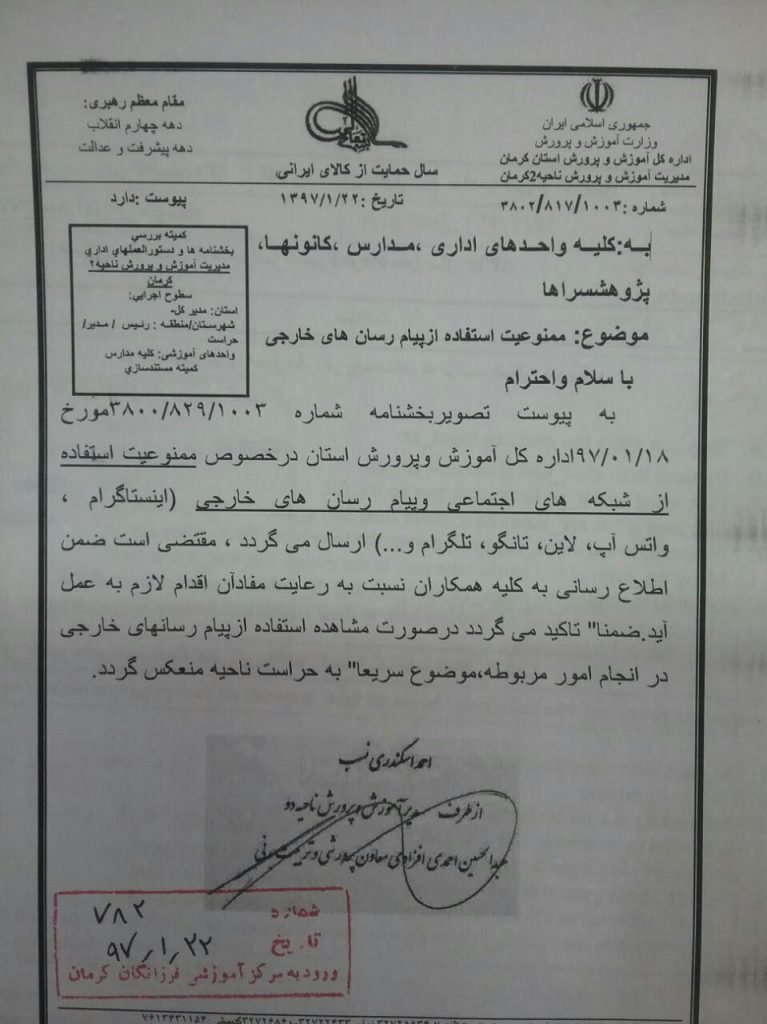 جمهوری اسلامی ایران
وزارت آموزش و پرورش
اداره کل آموزش و پرورش استان کرمان
مدیریت آموزش و پرورش ناحیه2کرمان
سال حمایت از کالای ایرانی
مقام معظم رهبری:
دهه چهارم انقلاب
دهه پیشرفت و عدالت
شماره :۳۸۰۲/۸۱۷/۱۰۰۳
تاریخ :۱۳۹۷/۱/۲۲
پیوست :دارد
کمیته بررسي
بخشنامه ها و دستورالعملهاي اداري
مدیریت آموزش و پرورش ناحیه۲
کرمان
سطوح اجرایي:
استان: مدیر کل-
شهرستان/منطقه : رئیس / مدیر/
حراست
واحدهای آموزشی: کلیه مدارس
کمیته مستندسازي
به:کلیه واحدهای اداری ،مدارس ،کانونها،
پژوهشسراها
موضوع: ممنوعیت استفاده ازپیام رسان های خارجی
با سلام واحترام
به پیوست تصویربخشنامه شماره ۳۸۰۰/۸۲۹/۱۰۰۳مورخ
۹۷/۰۱/۱۸اداره کل آموزش وپرورش استان درخصوص ممنوعیت استفاده
از شبکه های اجتماعی وپیام رسان های خارجی (اینستاگرام ،
واتس آپ، لاین، تانگو، تلگرام و...) ارسال می گردد ، مقتضی است ضمن
اطلاع رسانی به کلیه همکاران نسبت به رعایت مفادآن اقدام لازم به عمل
آید.ضمنا" تاکید می گردد درصورت مشاهده استفاده ازپیام رسانهای خارجی
در انجام امور مربوطه،موضوع سریعا" به حراست ناحیه منعکس گردد.
احمد اسکندری نسب
ازطرف مدیر آموزش و پرورش ناحیه دو
عبدالحسین احمدی افزادی معاون پرورشی و تربیت بدنی
شماره ۷۸۲
تاریخ ۹۷/۱/۲۲
ورود به مرکز آموزشی فرزانگان کرمان